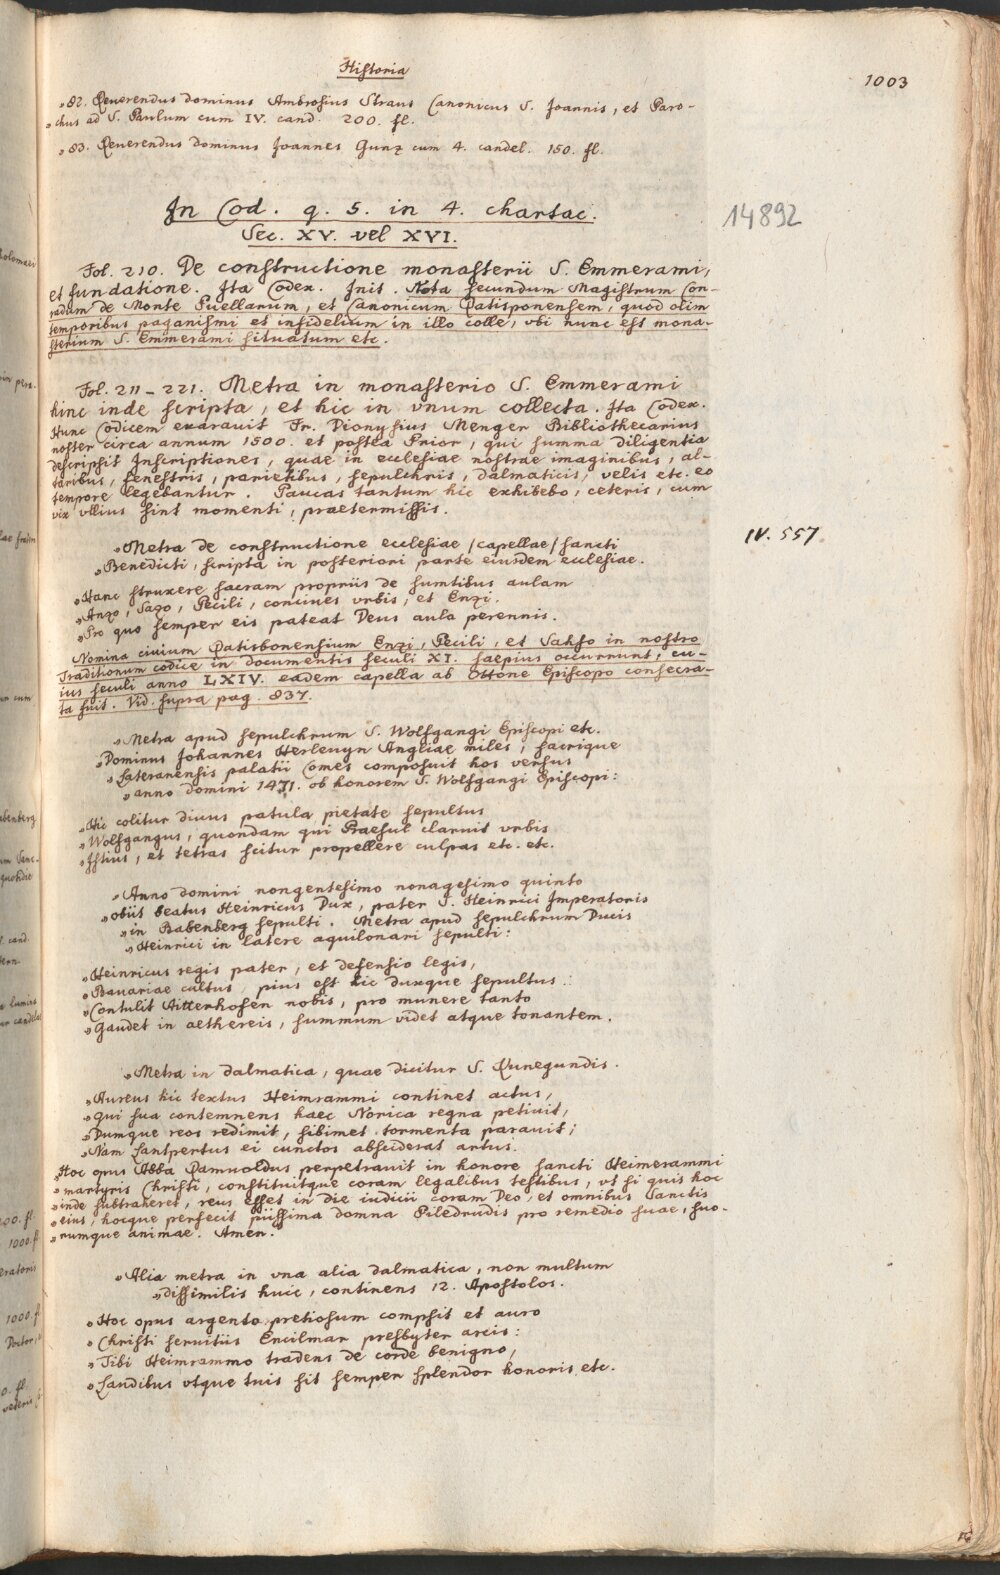 Historia
1003
„82. Reuerendus dominus Ambrosius Straus Canonicus S. Joannis, et Paro-
„chus ad S. Paulum cum IV. cand. 200. fl.
„83. Reuerendus dominus Joannes Gunz cum 4. candel. 150. fl.
In Cod. q. 5. in 4. chartac.
Sec. XV. vel XVI.
14892
Fol. 210. De constructione monasterii S. Emmerami,
et fundatione. Ita Codex. Init. Nota secundum Magistrum Con-
radum de Monte Puellarum, et Canonicum Ratisponensem, quod olim
temporibus paganismi et infidelium in illo colle, vbi nunc est mona-
sterium S. Emmerami situatum etc.
Fol. 211-221. Metra in monasterio S. Emmerami
hinc inde scripta, et hic in vnum collecta. Ita Codex.
Hunc Codicem exarauit Fr. Dionysius Menger Bibliothecarius
noster circa annum 1500. et postea Prior, qui summa diligentia
descripsit Inscriptiones, quae in ecclesiae nostrae imaginibus, al-
taribus, fenestris, parietibus, sepulchris, dalmaticis, velis etc. eo
tempore legebantur. Paucas tantum hic exhibebo, ceteris, cum
vix vllius sint momenti, praetermissis.
IV. 557.
„Metra de constructione ecclesiae /capellae/ sancti
„Benedicti, scripta in posteriori parte eiusdem ecclesiae.
„Hanc struxere sacram propriis de sumtibus aulam
„Anzo, Sazo, Pecili, conciues vrbis, et Enzi.
„Pro quo semper eis pateat Deus aula perennis.
Nomina ciuium Ratisbonensium Enzi, Pecili, et Sahso in nostro
Traditionum codice in documentis seculi XI. saepius occurrunt, cu-
ius seculi anno LXIV. eadem capella ab Ottone Episcopo consecra-
ta fuit. Vid. supra pag. 837.
„Metra apud sepulchrum S. Wolfgangi Episcopi etc.
„Dominus Johannes Herleuyn Angliae miles, sacrique
„Lateranensis palatii Comes composuit hos versus
„anno domini 1471. ob honorem S. Wolfgangi Episcopi:
„Hic colitur diuus patula pietate sepultus
„Wolfgangus, quondam qui Praesul claruit vrbis
„Istius, et tetras scitur propellere culpas etc. etc.
„Anno domini nongentesimo nonagesimo quinto
„obiit beatus Heinricus Dux, pater S. Heinrici Imperatoris
„in Babenberg sepulti. Metra apud sepulchrum Ducis
„Heinrici in latere aquilonari sepulti:
„Heinricus regis pater, et defensio legis,
„Bauariae cultus, pius est hic duxque sepultus:
„Contulit Aitterhofen nobis, pro munere tanto
„Gaudet in aethereis, summum videt atque tonantem.
„Metra in dalmatica, quae dicitur S. Kunegundis.
„Aureus hic textus Heimrammi continet actus,
„qui sua contemnens haec Norica regna petiuit,
„Dumque reos redimit, sibimet tormenta parauit;
„Nam Lantpertus ei cunctos absciderat artus.
„Hoc opus Abba Ramuoldus perpetrauit in honore sancti Heimerammi
„martyris Christi, constituitque coram legalibus testibus, vt si quis hoc
„inde subtraheret, reus esset in die iudicii coram Deo, et omnibus Sanctis
„eius, hocque perfecit piissima domna Piledrudis pro remedio suae, suo-
„rumque animae. Amen.
„Alia metra in vna alia dalmatica, non multum
„dissimilis huic, continens 12. Apostolos.
„Hoc opus argento pretiosum compsit et auro
„Christi seruitiis Encilmar presbyter arcis:
„Tibi Heimrammo tradens de corde benigno,
„Laudibus vtque tuis sit semper splendor honoris etc.